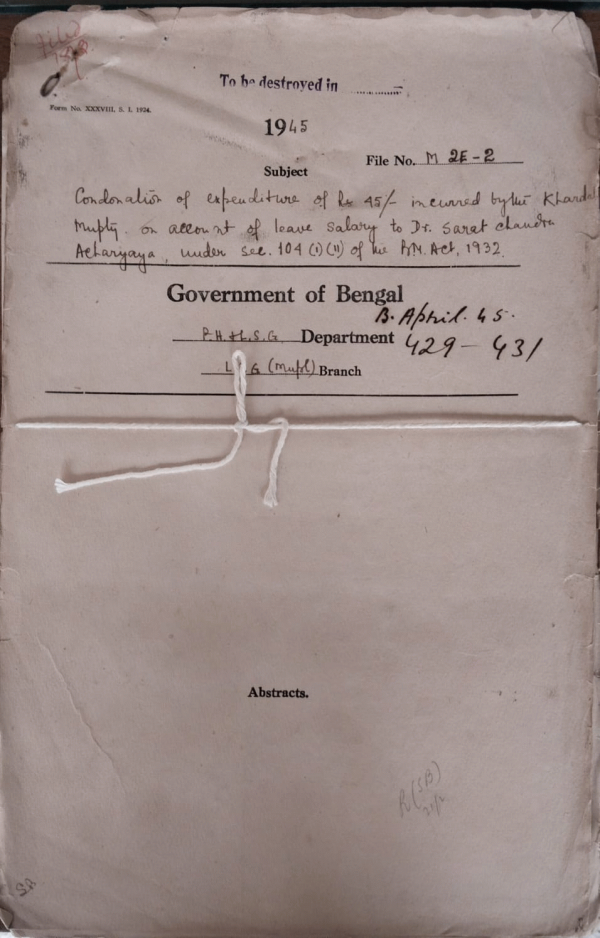 To be destroyed in ............
Form No. XXXVIII. S. I. 1924.
1945
File No. M 2E-2
Subject
Condonation of expenditure of Rs 45/- incurred by the Khardah
Mupty. on account of leave salary to Dr. Sarat chandra
Acharyaya, under sec. 104 (1)(11) of the B.M. Act, 1932.
Government of Bengal
B. April. 45.
P.H. & L.S.G. Department
429 - 431
L S G (Mupl) Branch
Abstracts.
R(SB)
SB